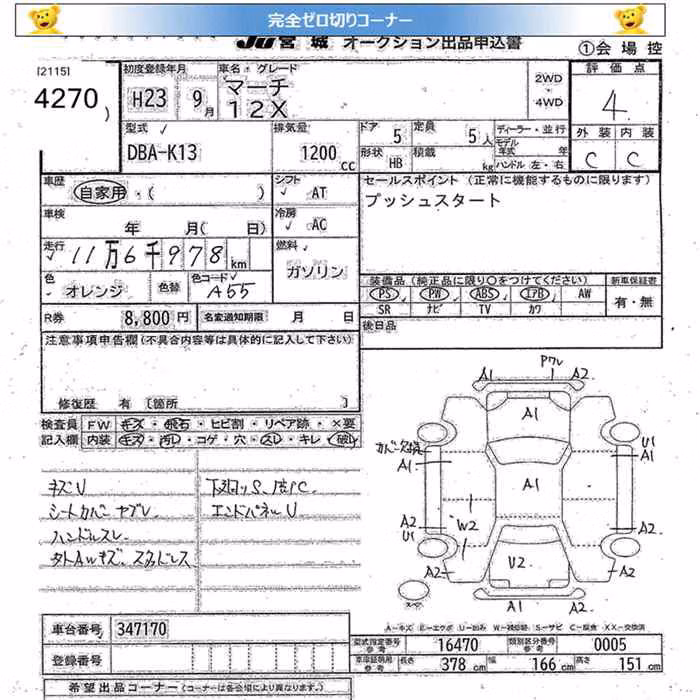 完全ゼロ切りコーナー
JU宮城 オークション出品申込書
①会場控
[2115]
4270
初度登録年月
H23 9月
車名・グレード
マーチ
12X
2WD
・
4WD
評価点
4
外装 内装
C C
型式
DBA-K13
排気量
1200cc
ドア 5
定員 5人
形状 HB
積載 kg
ディーラー・並行
モデル年式 年
ハンドル 左・右
車歴
自家用・( )
シフト
AT
セールスポイント (正常に機能するものに限ります)
プッシュスタート
車検
年 月( 日)
冷房
AC
走行
11万6千978km
燃料
ガソリン
色
オレンジ
色替
色コード
A55
装備品 (純正品に限り○をつけてください)
新車保証書
PS PW ABS エアB AW
SR ナビ TV カワ
有・無
R券 8,800円
名変通知期限 月 日
後日品
注意事項申告欄(不具合内容等は具体的に記入して下さい)
修復歴 有 〔箇所 〕
検査員記入欄
FW キズ・飛石・ヒビ割・リペア跡・×要
内装 キズ・汚レ・コゲ・穴・スレ・キレ・破レ
キズU
シートカバーヤブレ
ハンドルスレ
エンドパネルU
Pワレ
A1 A2
A1
カバー欠損
A1
U1
A1
A1
A2
U1
W2
A2
U2
A2
A2
A1 A2
スペア
A-キズ E-エクボ U-凹み W-補修跡 S-サビ C-腐食 XX-交換済
車台番号 347170
登録番号
型式指定番号 参考 16470
類別区分番号 参考 0005
車庫証明用 参考
長さ 378cm
幅 166cm
高さ 151cm
希望出品コーナー(コーナーは各会場により異なります。)